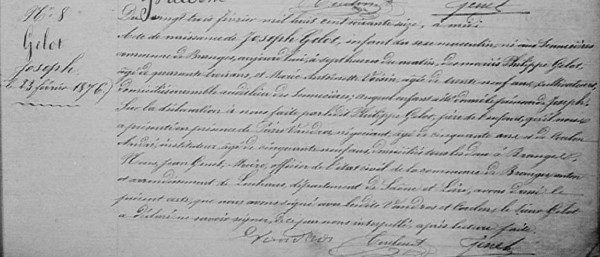 N° 8
Gelot
Joseph
le 23 février 1876
Du vingt trois février mil huit cent soixante seize, à midi
Acte de naissance de Joseph Gelot, enfant du sexe masculin, né aux
commune de Branges, aujourd'hui, à sept heures du matin, du mariés Philippe Gelot,
âgé de quarante trois ans, et Marie Antoinette âgée de trente neuf ans, cultivateurs,
domiciliés ensemble enfant été donné le prénom de Joseph.
Sur la déclaration à nous faite par ledit Philippe Gelot, père de l'enfant, qu'il nous
a présenté en présence de Vaudros négociant, âgé de cinquante ans, et de
André, instituteur, âgé de cinquante neuf ans, domiciliés tous les deux à Branges.
Nous, Jean Genet, Maire, officier de l'état civil de la commune de Branges, canton
et arrondissement de Louhans, département de Saône et Loire, avons dressé le
présent acte, que nous avons signé avec lesdits Vaudros et le sieur Gelot
a déclaré ne savoir signer, de ce par nous interpellé, après lecture faite.
Genet